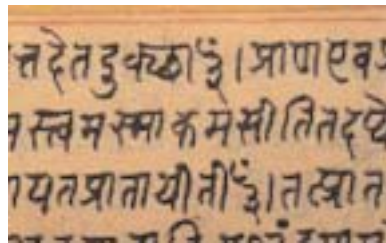 त्तदेतदुक्था३ँ।प्राणएव
स्त्वमस्माकमेसीतितदप्ये
यतप्रातायीती३ँ।तत्प्रात